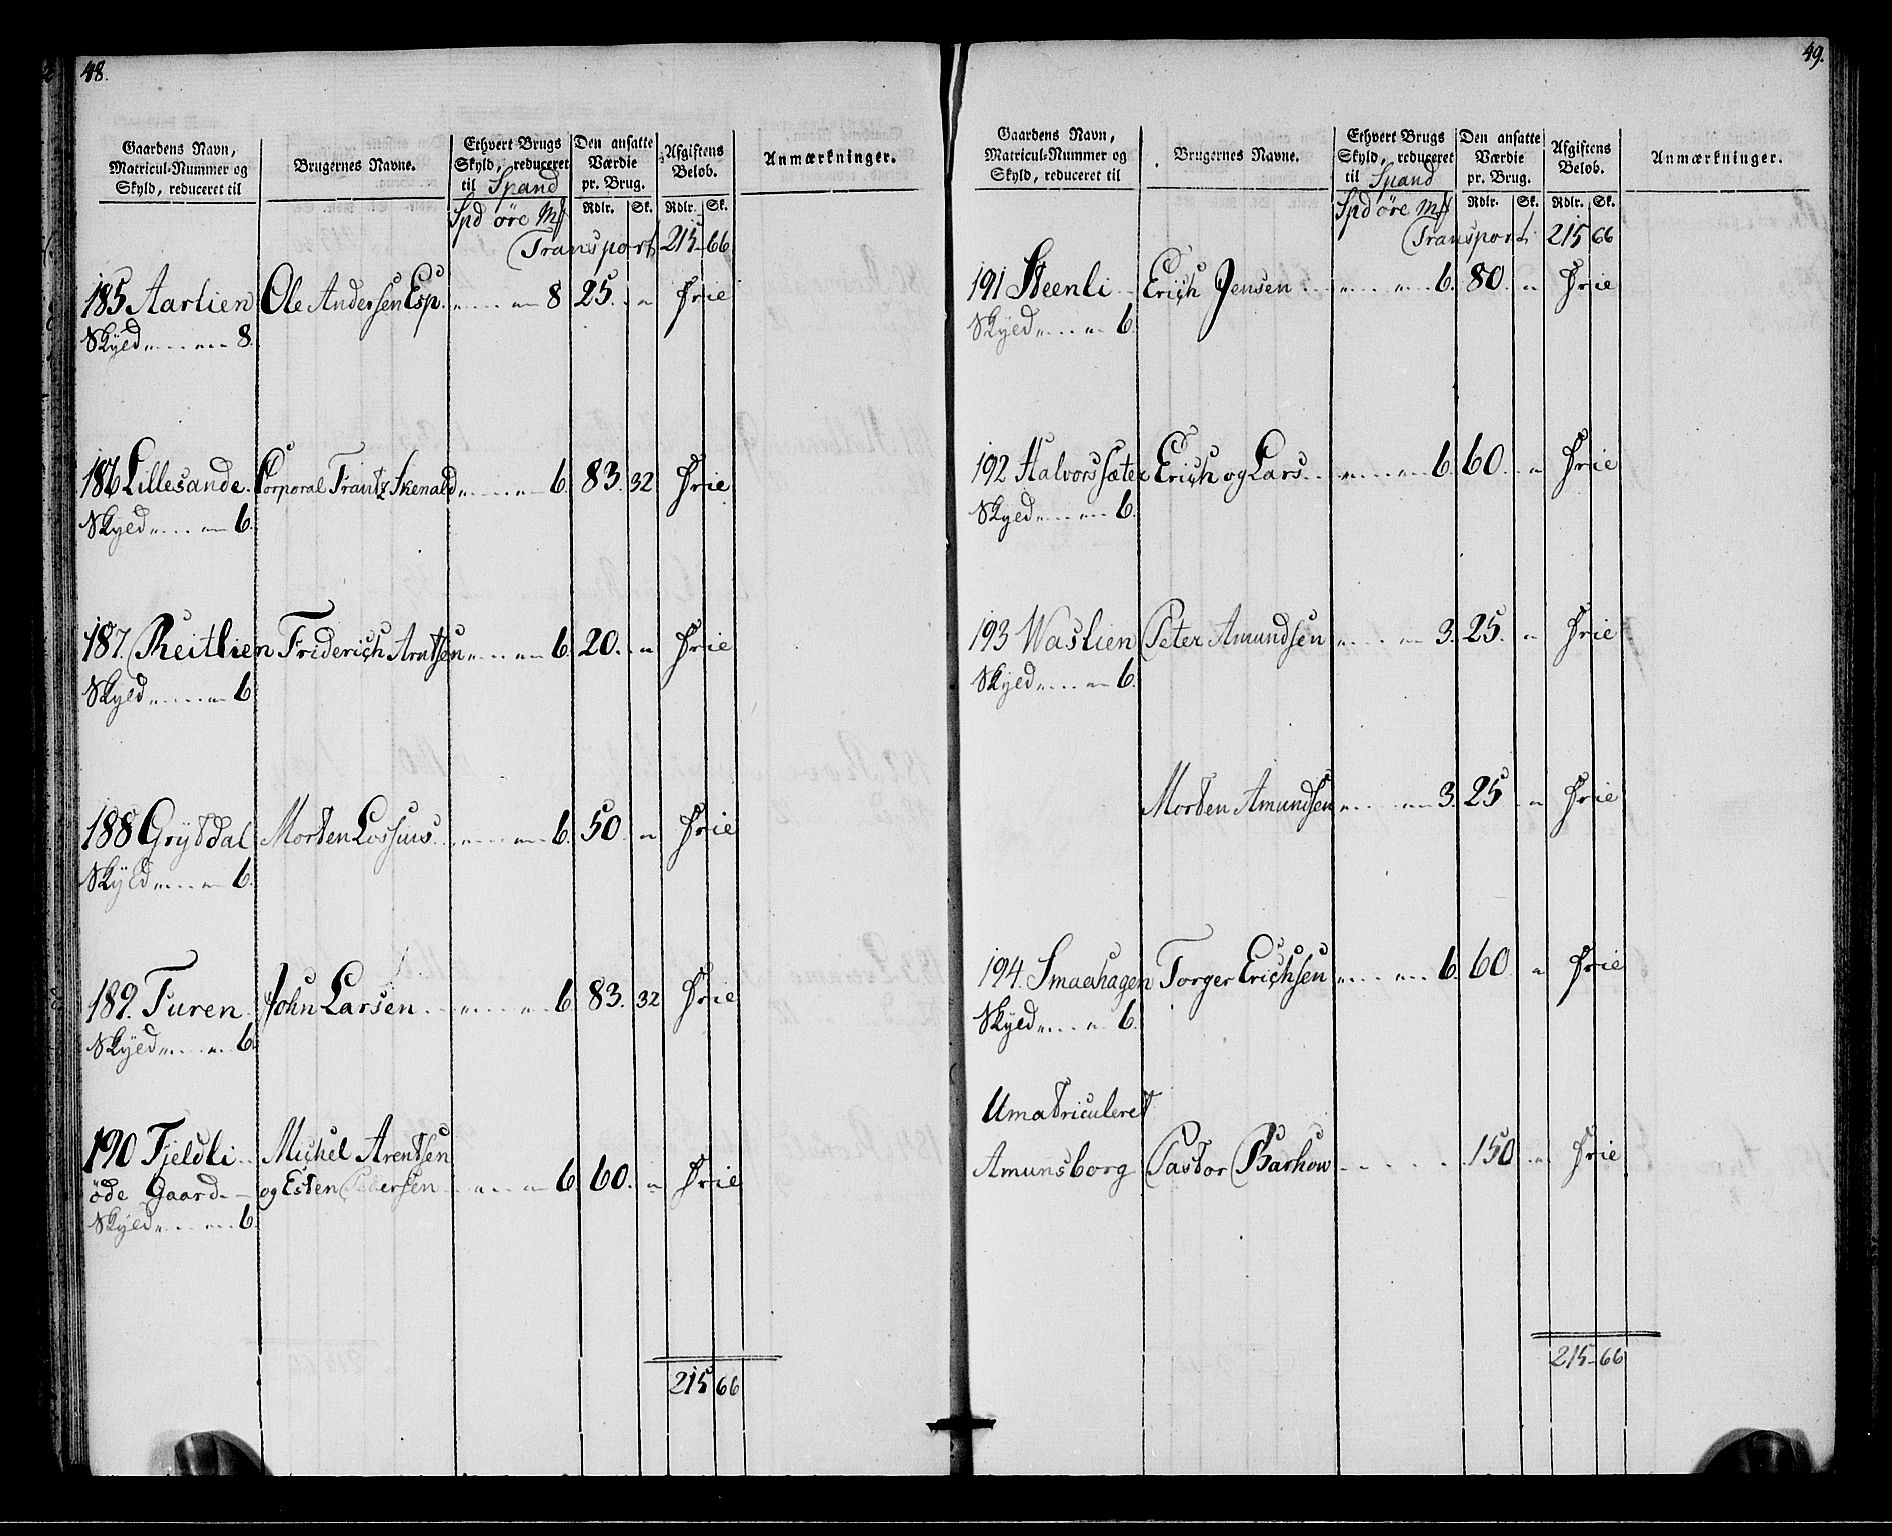 48.
Gaardens Navn, Matricul-Nummer og Skyld, reduceret til
Brugernes Navne.
Ethvert Brugs Skyld, reduceret til Spand
Den ansatte Værdie pr. Brug.
Afgiftens Beløb.
Anmærkninger.
Rdlr. Sk. Rdlr. Sk.
Spd öre Mk
Transport 215 66
185 Aarlien Ole Andersen Esp. 8 25. " Frie
Skyld 8.
186 Lillesande. Corporal Frantz Skenald 6. 83. 32 Frie
Skyld 6.
187. Reitlien Friderich Arntsen 6. 20. " Frie
Skyld 6.
188 Grytdal Morten Lossius 6. 50. " Frie
Skyld 6.
189. Turen John Larsen 6. 83. 32 Frie
Skyld 6.
190 Fjeldli Michel Arentsen
öde Gaard og Esten Pedersen 6 60. " Frie
Skyld 6.
215 66
49.
Gaardens Navn, Matricul-Nummer og Skyld, reduceret til
Brugernes Navne.
Ethvert Brugs Skyld, reduceret til Spand
Den ansatte Værdie pr. Brug.
Afgiftens Beløb.
Anmærkninger.
Rdlr. Sk. Rdlr. Sk.
Spd öre Mk
Transport 215 66
191 Steenli Erich Jensen 6. 80. " Frie
Skyld 6.
192 Halvorssæter Erich og Lars 6. 60. " Frie
Skyld 6.
193 Waslien Peter Amundsen 3. 25. " Frie
Skyld 6.
Morten Amundsen 3. 25 " Frie
194. Smaahagen Torger Erichsen 6. 60. " Frie
Skyld 6.
Umatriculeret
Amunsborg Pastor Barhow 150 " Frie
215 66